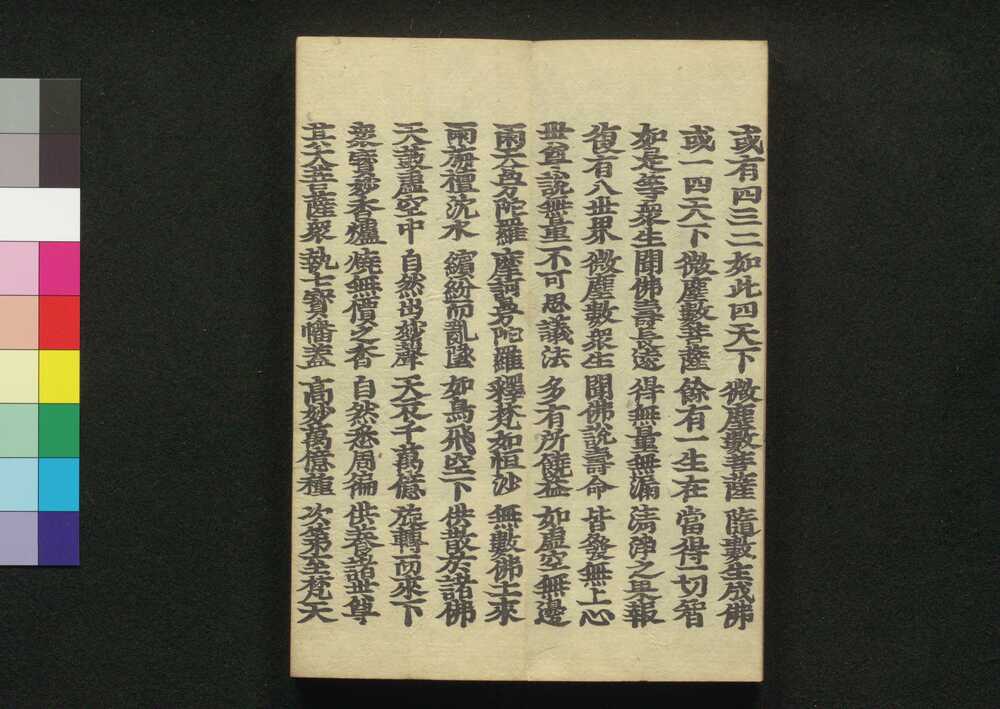 或有四三二如此四天下微塵數菩薩隨數生成佛
或一四天下微塵數菩薩餘有一生在當得一切智
如是等衆生聞佛壽長遠得無量無漏清淨之果報
復有八世界微塵數衆生聞佛說壽命皆發無上心
世尊說無量不可思議法多有所饒益如虛空無邊
雨天曼陀羅摩訶曼陀羅釋梵如恒沙無數佛土來
雨栴檀沈水繽紛而亂墜如鳥飛空下供散於諸佛
天鼓虛空中自然出妙聲天衣千萬億旋轉而來下
衆寶妙香爐燒無價之香自然悉周徧供養諸世尊
其大菩薩衆執七寶幡蓋高妙萬億種次第至梵天